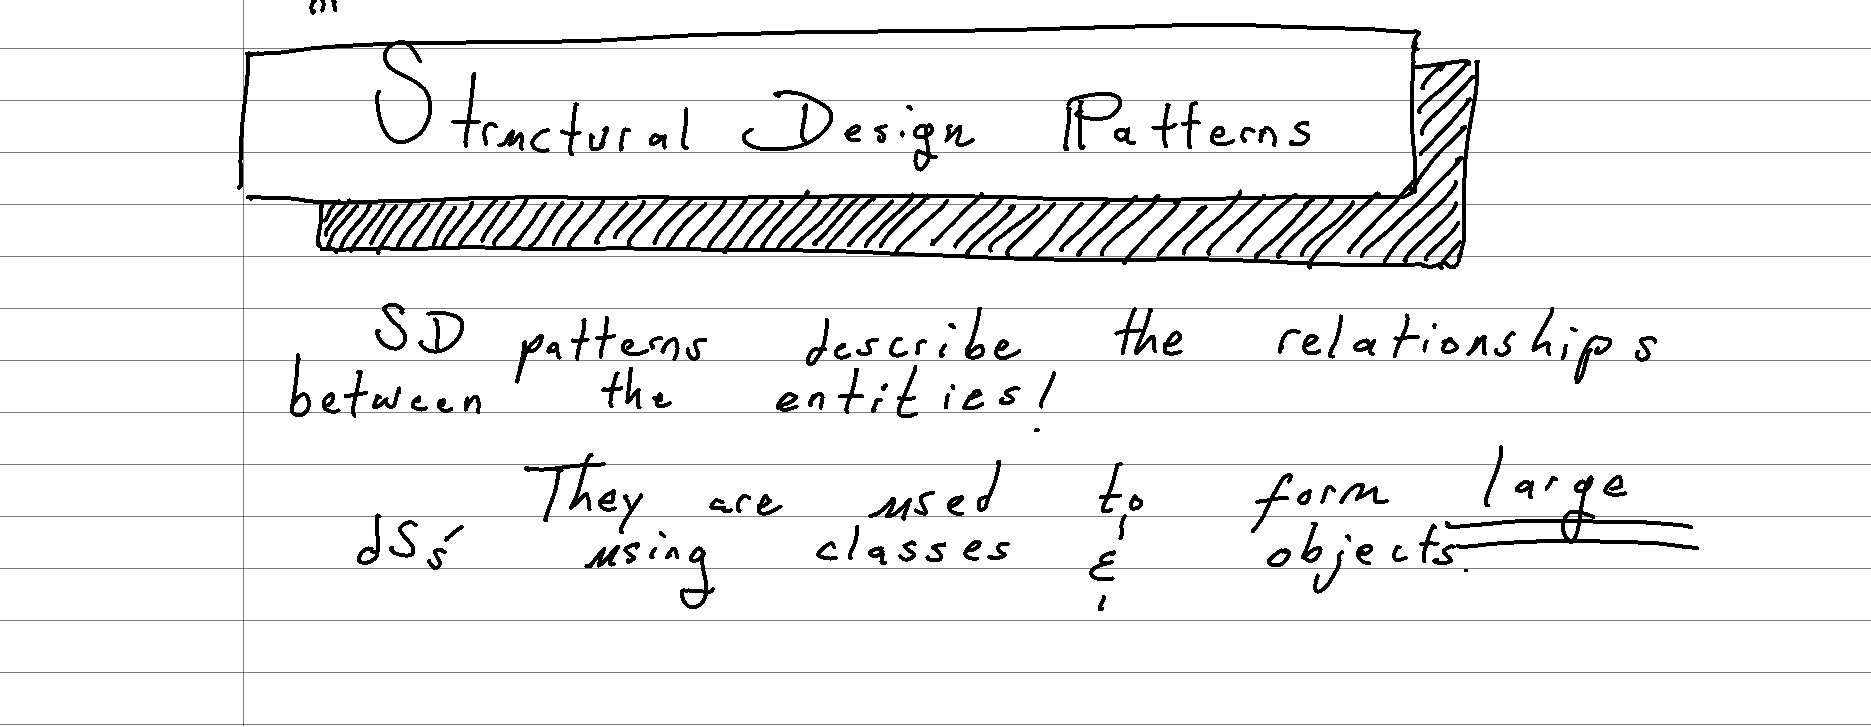 Structural Design Patterns
SD patterns describe the relationships
between the entities!
They are used to form large
dSs' using classes & objects.